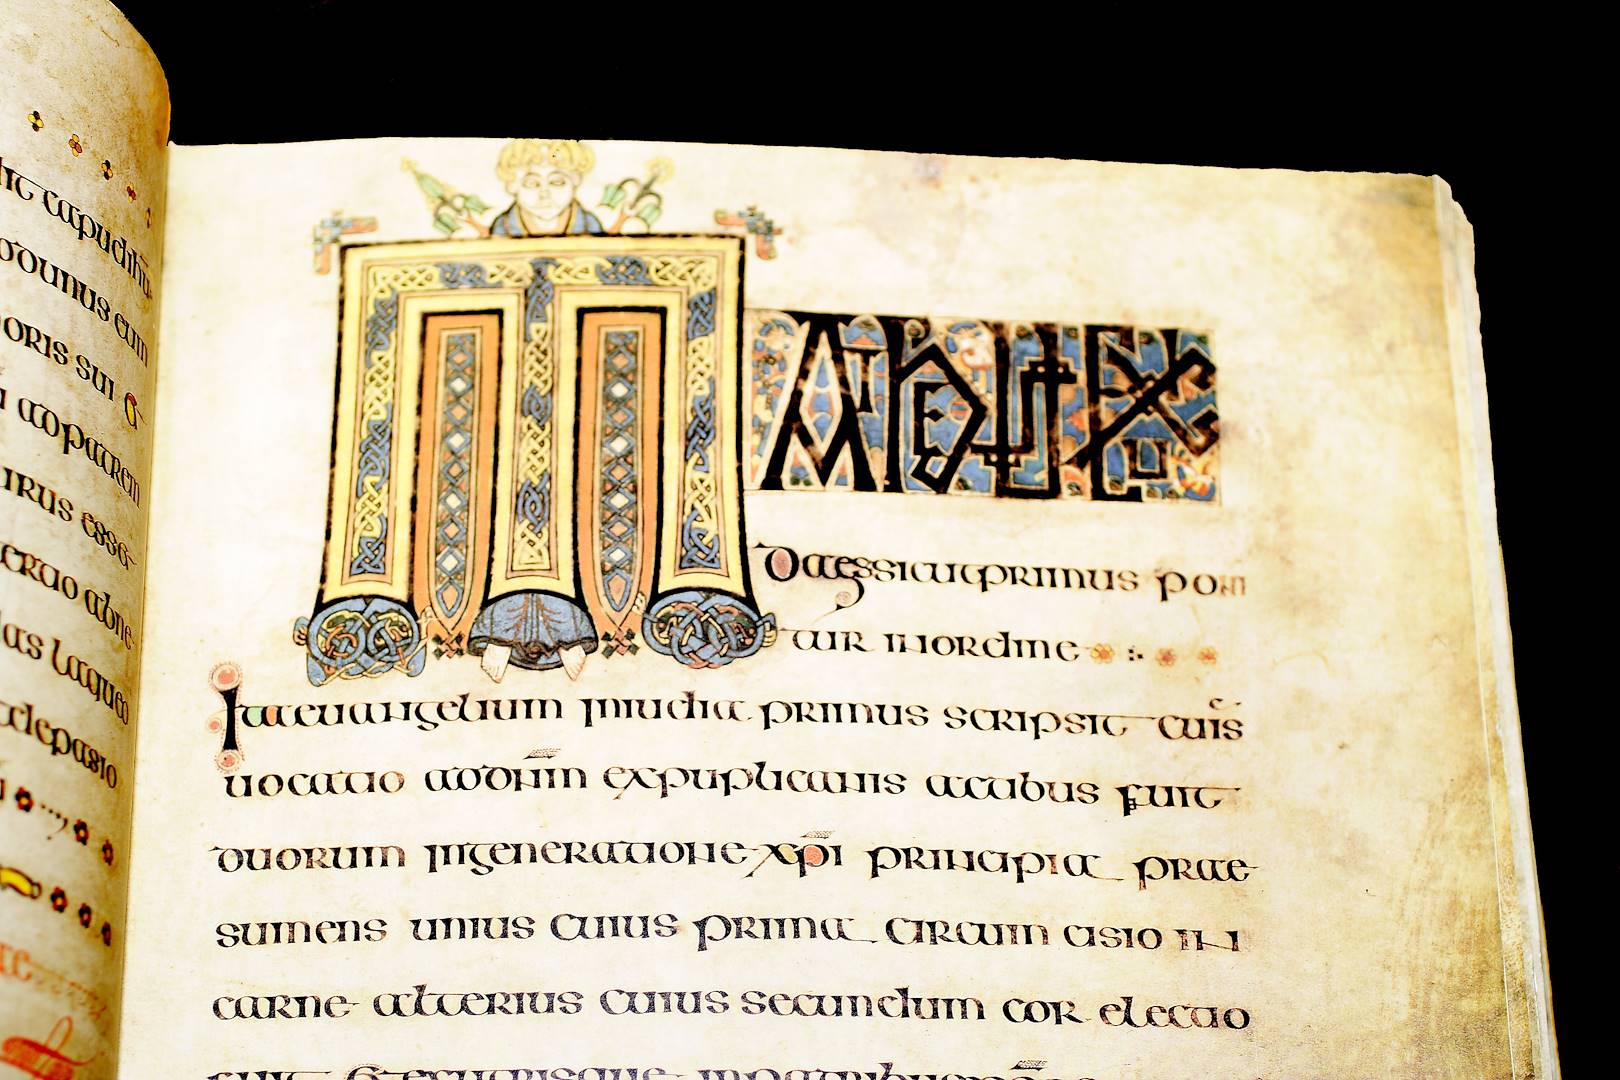 capud
oris sui
ad patrem
irus esse
las laqueo
MATHEUS EX IU
daessicut primus poni
tur in ordine
Ita euangelium in iudia primus scripsit cuis
uocatio ad dnm ex puplicanis actibus fuit
duorum in generatione xpi principia prae
sumens unius cuius prima circum cisio in
carne alterius cuius secundum cor electio
fuit